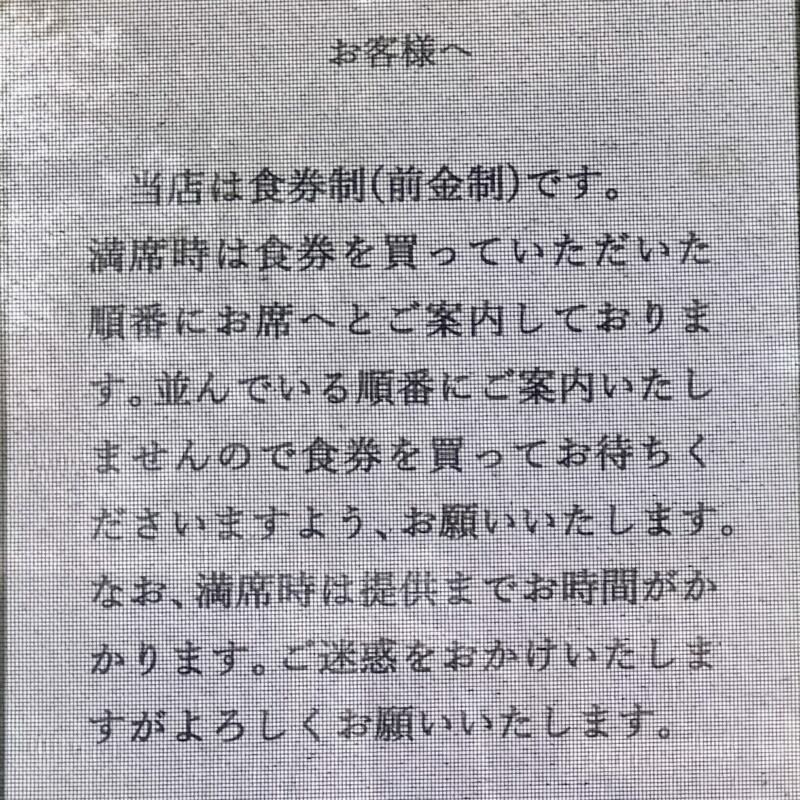 お客様へ
当店は食券制(前金制)です。
満席時は食券を買っていただいた
順番にお席へとご案内しておりま
す。並んでいる順番にご案内いたし
ませんので食券を買ってお待ちく
ださいますよう、お願いいたします。
なお、満席時は提供までお時間がか
かります。ご迷惑をおかけいたしま
すがよろしくお願いいたします。